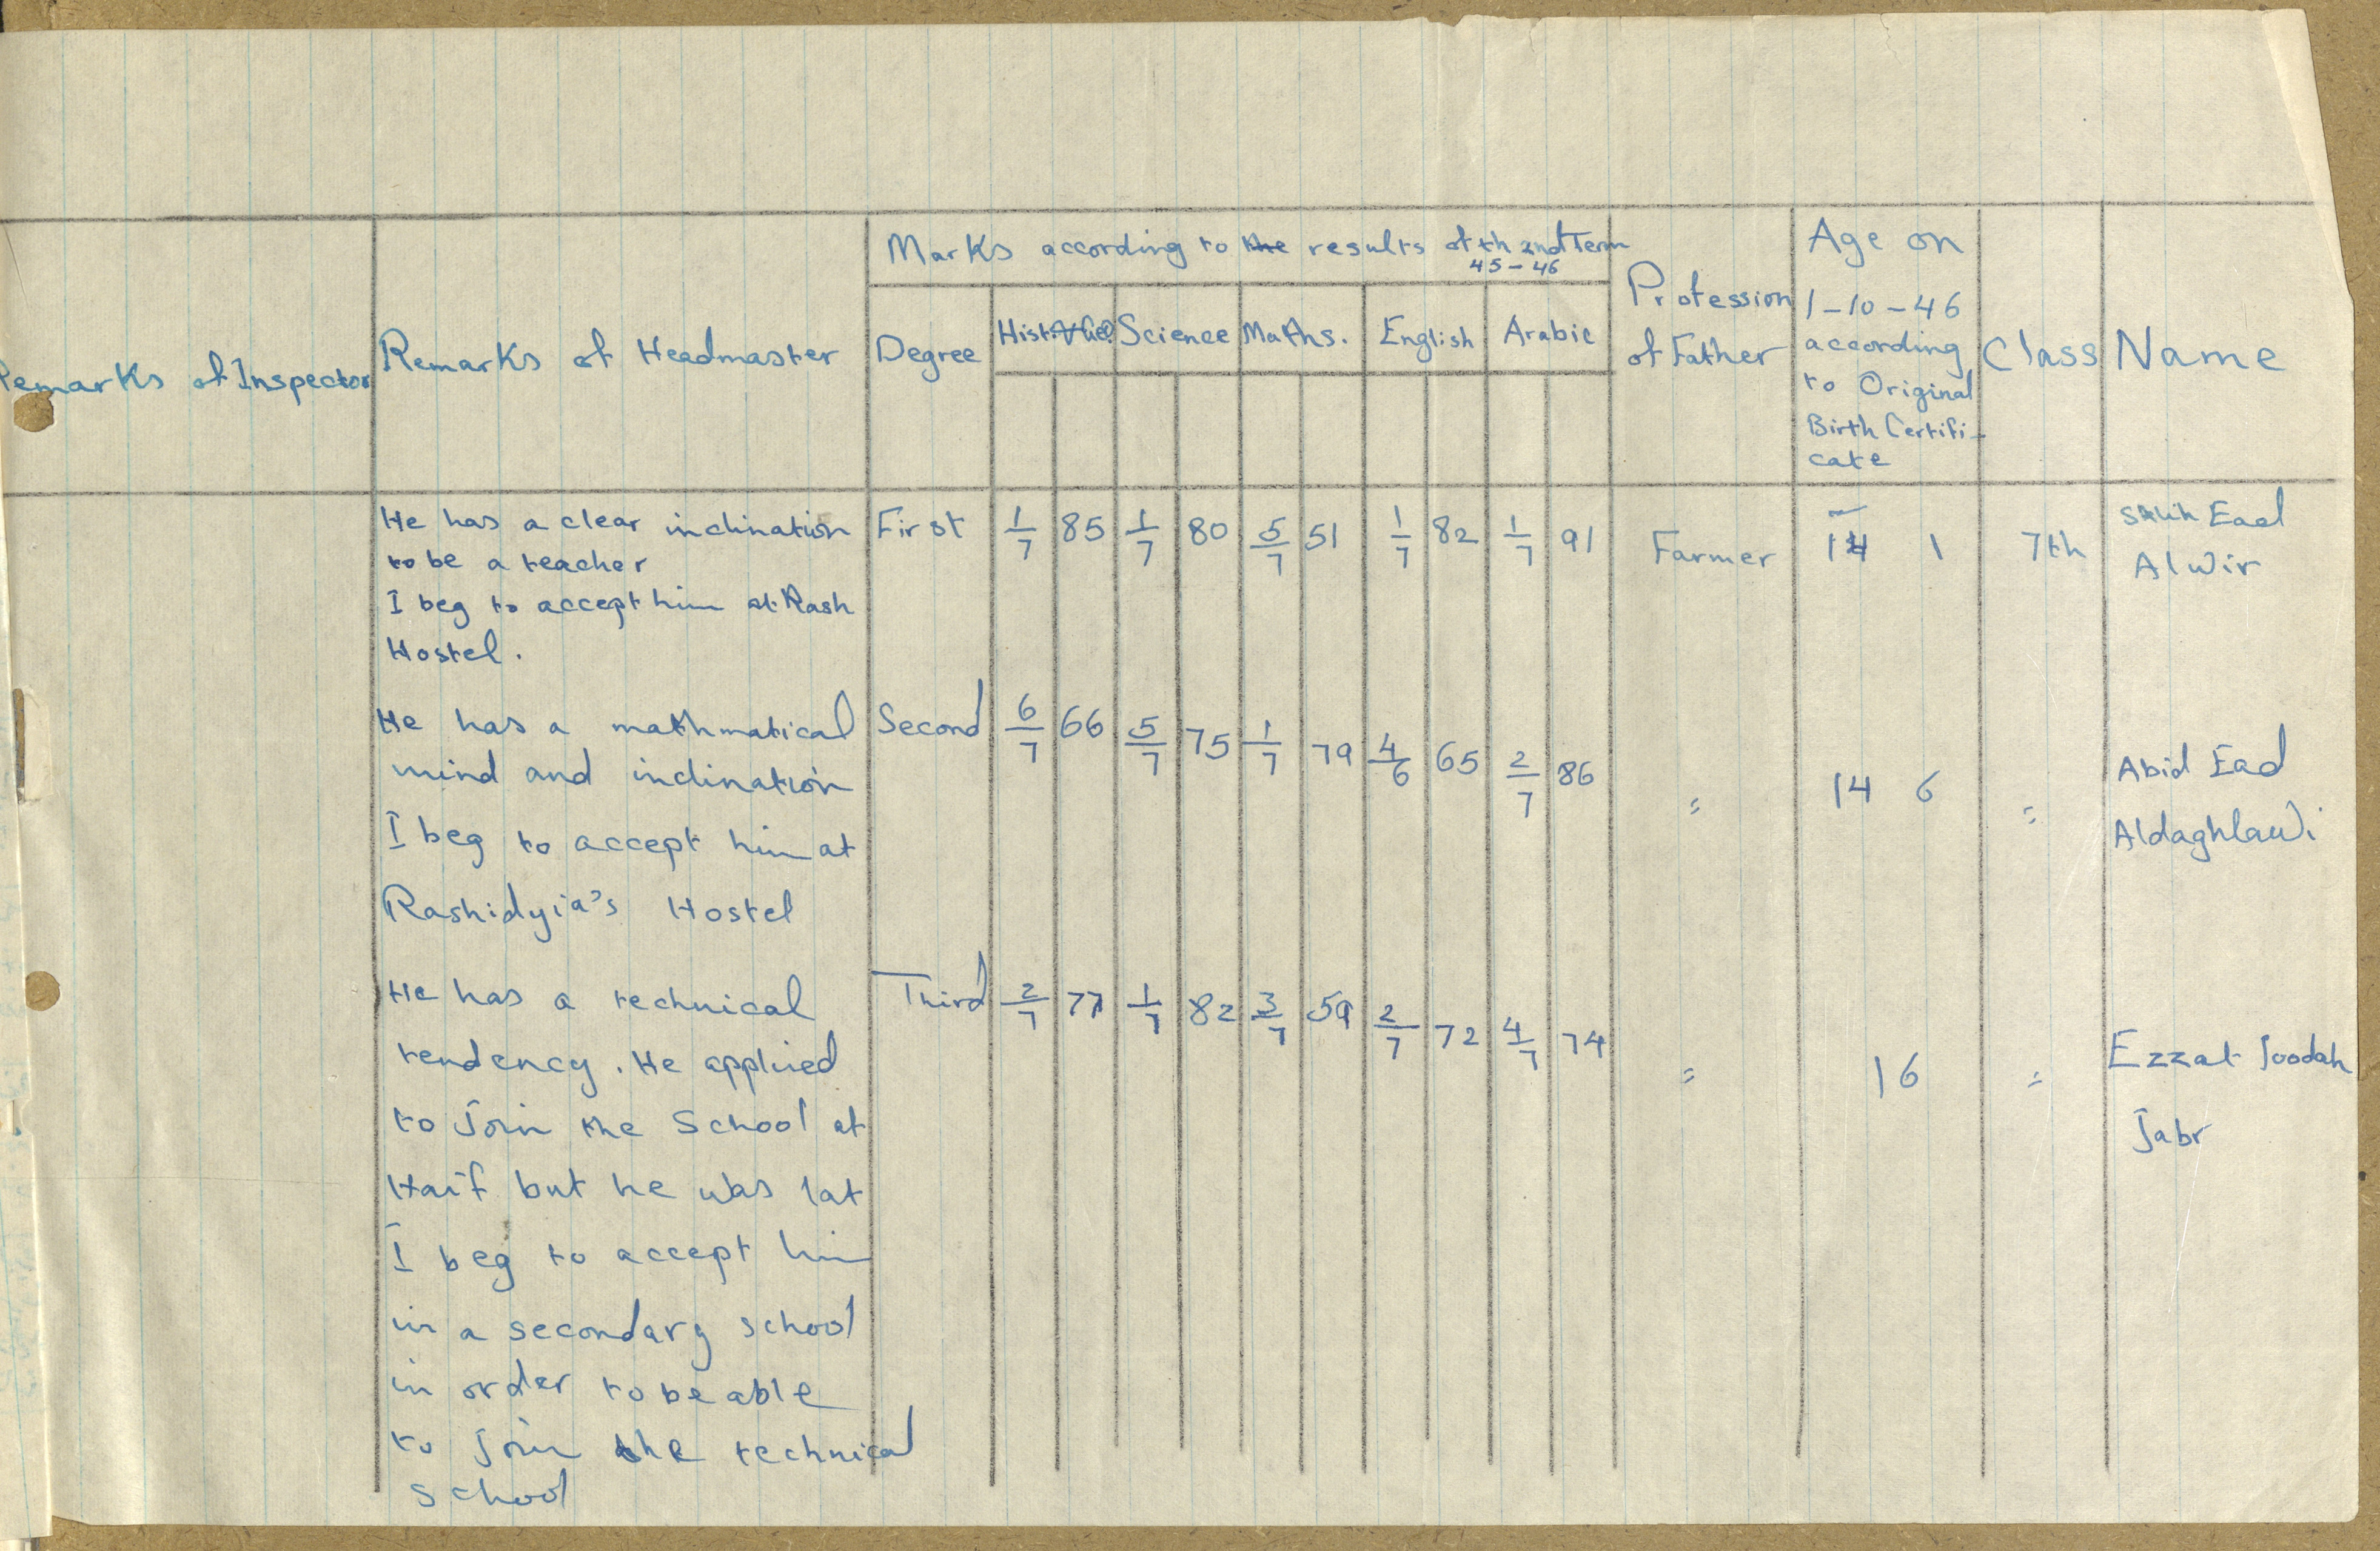 Remarks of Inspector
Remarks of Headmaster
Marks according to the results of th 2nd Term
45 - 46
Degree
Hist.
Science
Maths.
English
Arabic
Profession
of Father
Age on
1-10-46
according
to Original
Birth Certifi-
cate
Class
Name
He has a clear inclination
to be a teacher
I beg to accept him at Rash
Hostel.
First 1/7 85 1/7 80 5/7 51 1/7 82 1/7 91
Farmer
14 1
7th
Ead
Alwir
He has a mathmatical
mind and inclination
I beg to accept him at
Rashidyia's Hostel
Second 6/7 66 5/7 75 1/7 79 4/6 65 2/7 86
"
14 6
"
Abid Ead
Aldaghlawi
He has a technical
tendency. He applied
to Join the School at
Haif but he was lat
I beg to accept him
in a secondary school
in order to be able
to Join the technical
School
Third 2/7 77 1/7 82 3/7 59 2/7 72 4/7 74
"
16
"
Ezzat Joodah
Jabr